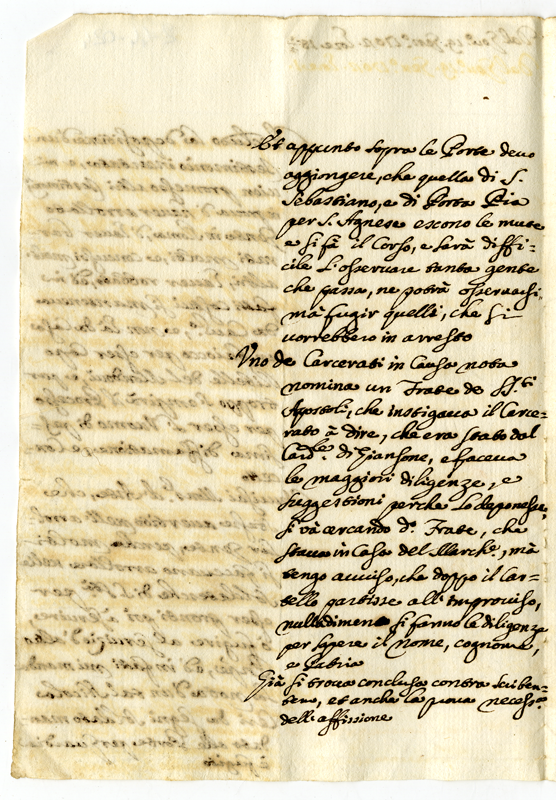 Et appunto sopra le Porte devo
aggiongere, che quella di S.
Sebastiano, e di Porta Pia
per S. Agnese escono le mute
e si fà il Corso, e sarà diffi-
cile l'osservare tanta gente
che passa, ne potrà osservarsi,
mà fugir quelli, che si
vorrebbero in arresto
Uno de Carcerati in Causa nota
nomina un Frate de SS.ti
Apostoli, che instigava il Carce-
rato à dire, che era stato dal
Card.le di Giansone, e faceva
le maggiori diligenze, e
suggestioni perche lo deponesse,
si và cercando d.o Frate, che
stava in Casa del March.e, mà
tengo avviso, che doppo il Car-
tello partisse all'improviso,
nulladimeno si fanno le diligenze
per sapere il nome, cognome,
e Patria
Già si trova conclusa contra scriben-
tem, et anche la prova necess.a
dell'affissione